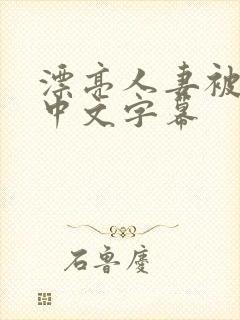 漂亮人妻被
中文字幕
石鲁廑